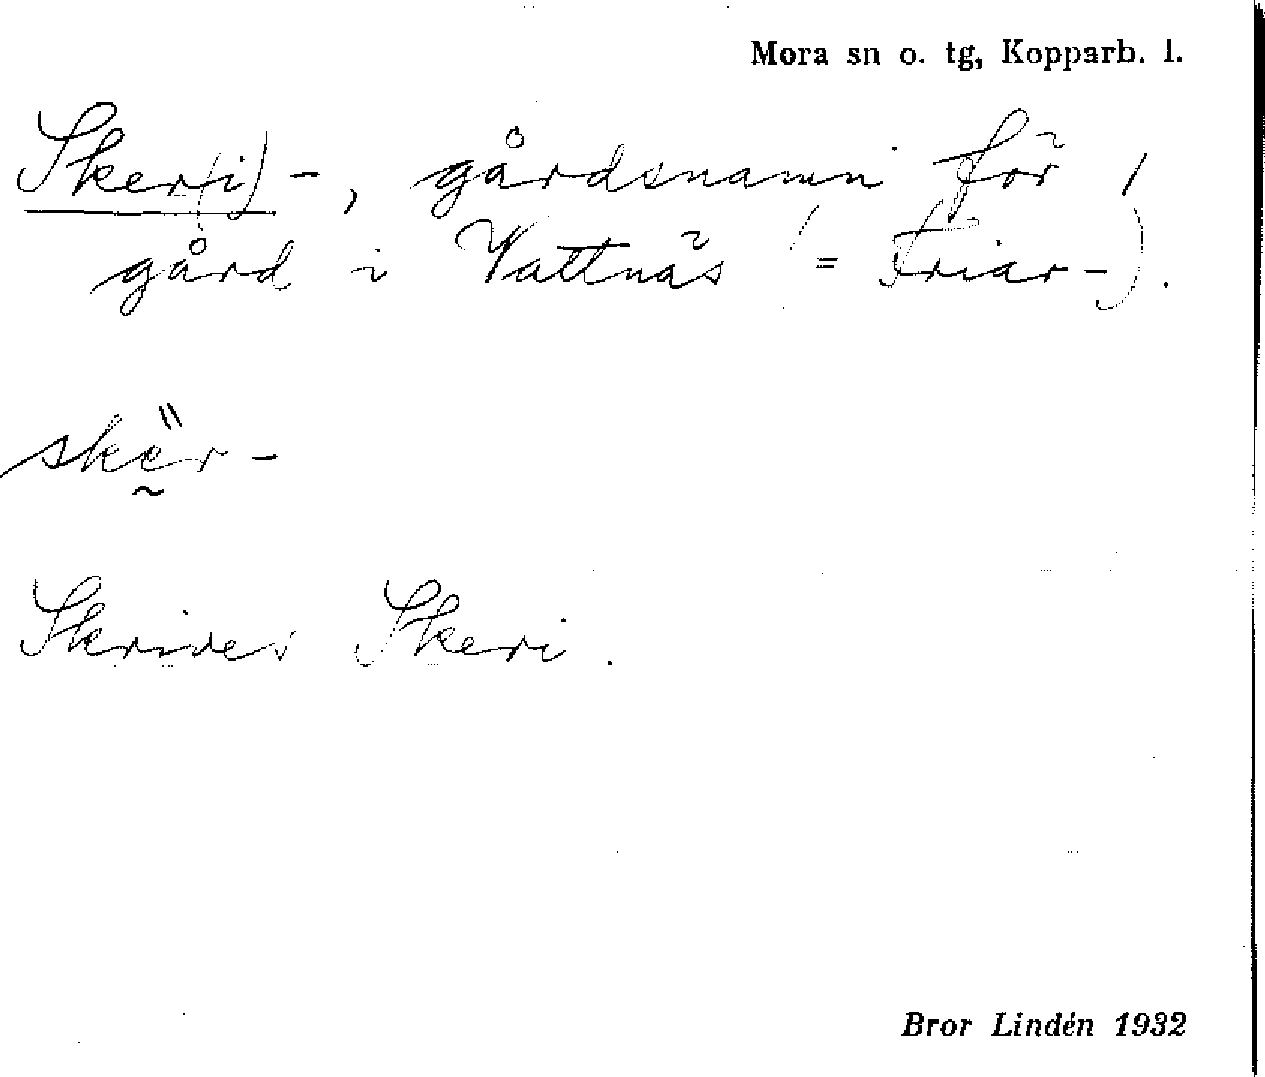 Mora sn o. tg, Kopparb. l.
Sker(i)-, gårdsnamn för 1
gård i Vattnäs (= Friar-).
skër-
Skrives Skeri.
Bror Lindén 1932